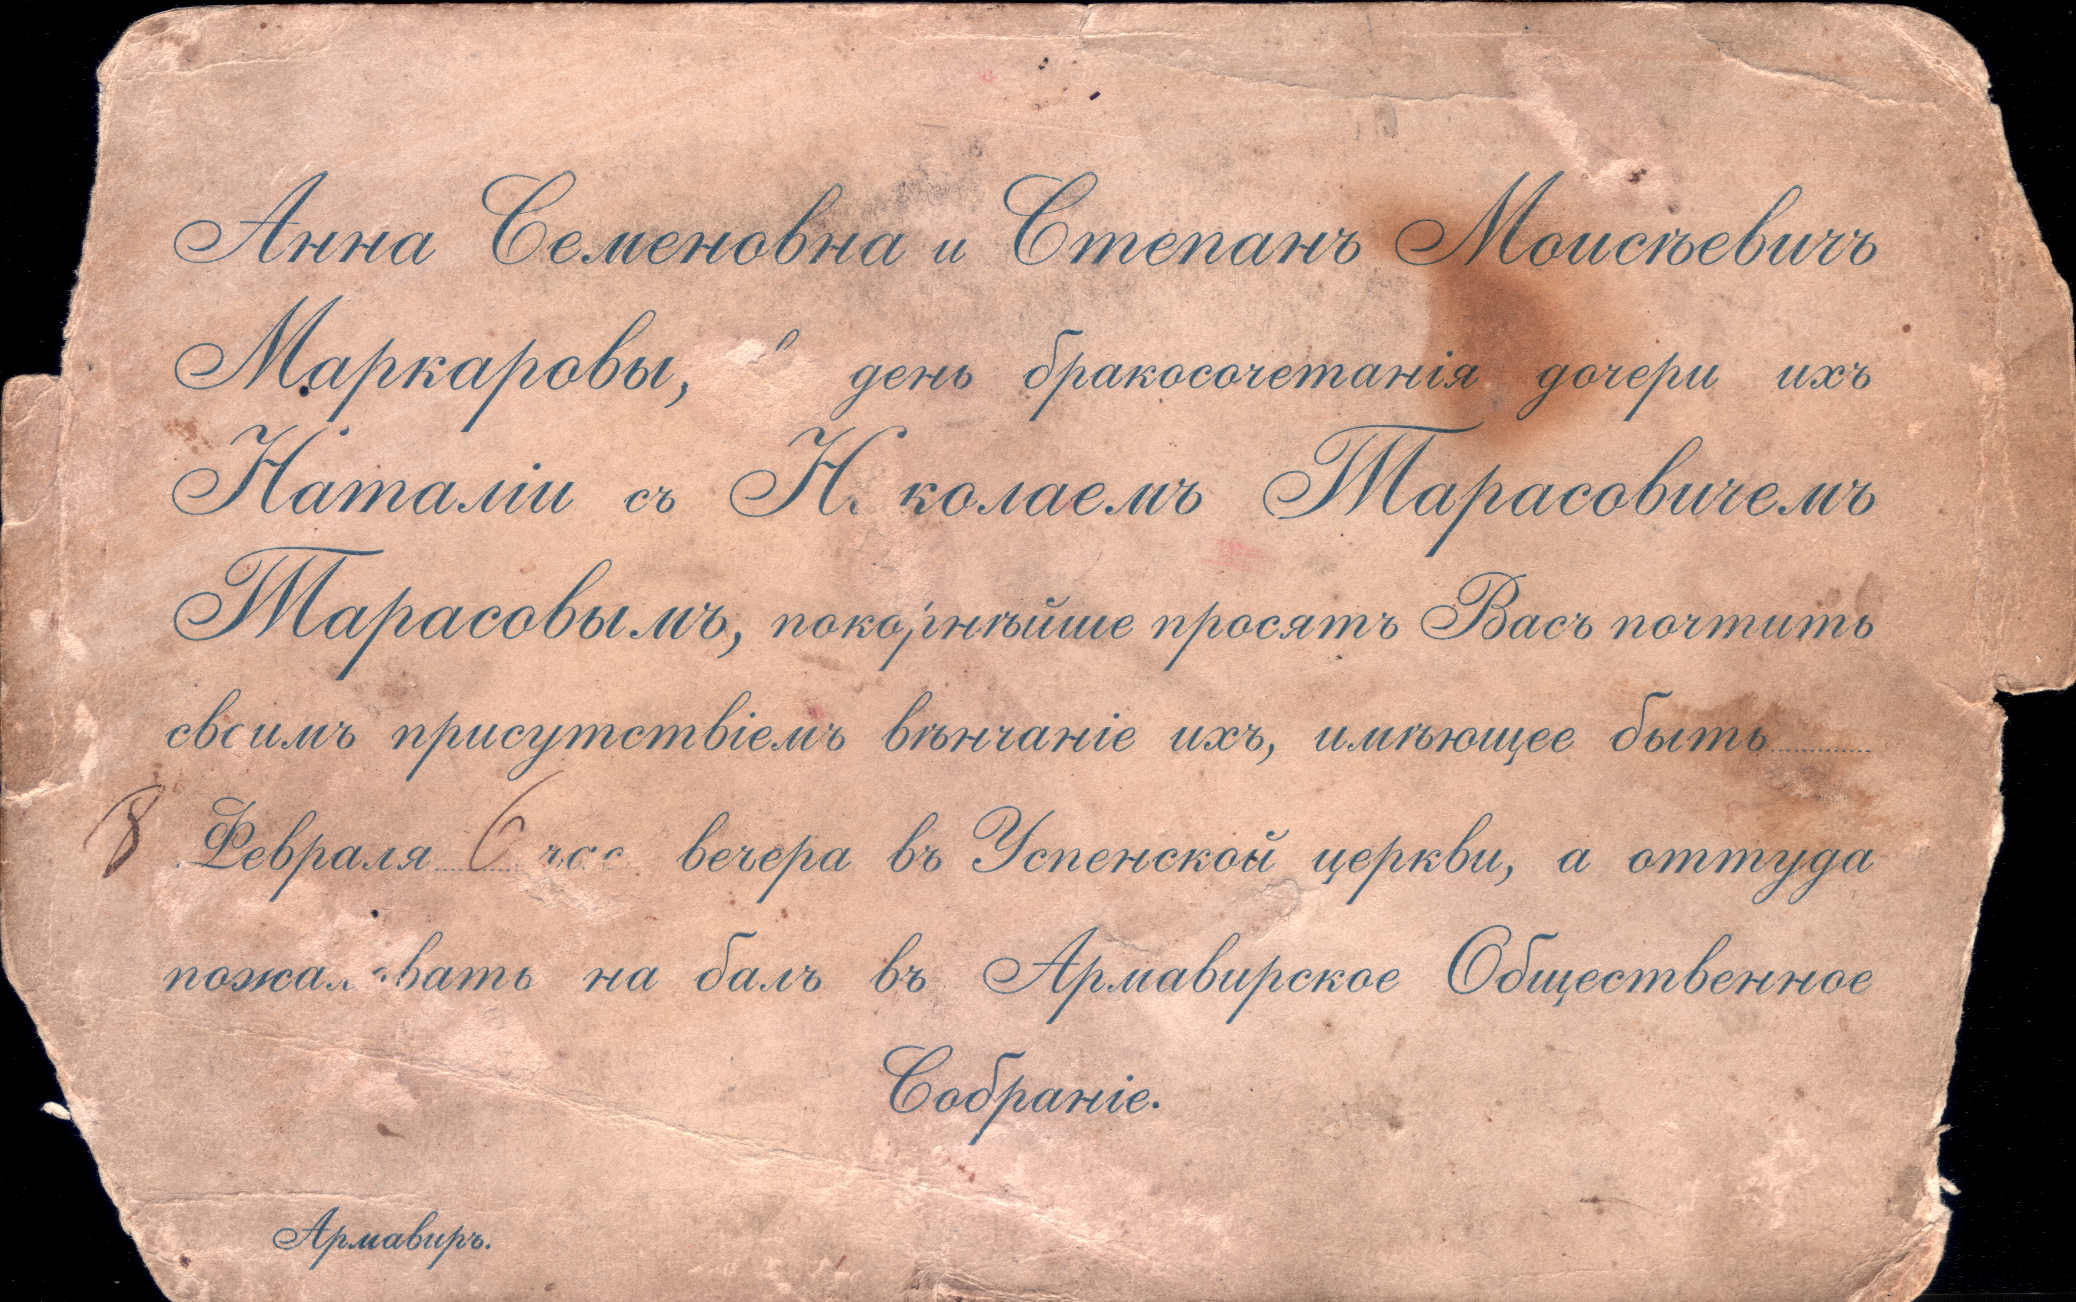 Анна Семеновна и Степанъ Моисѣевичъ
Маркаровы, день бракосочетанія дочери ихъ
Наталіи съ Николаемъ Тарасовичемъ
Тарасовымъ, покорнѣйше просятъ Васъ почтить
своимъ присутствіемъ вѣнчаніе ихъ, имѣющее быть
8 Февраля 6 час вечера въ Успенской церкви, а оттуда
пожаловать на балъ въ Армавирское Общественное
Собраніе.
Армавиръ.